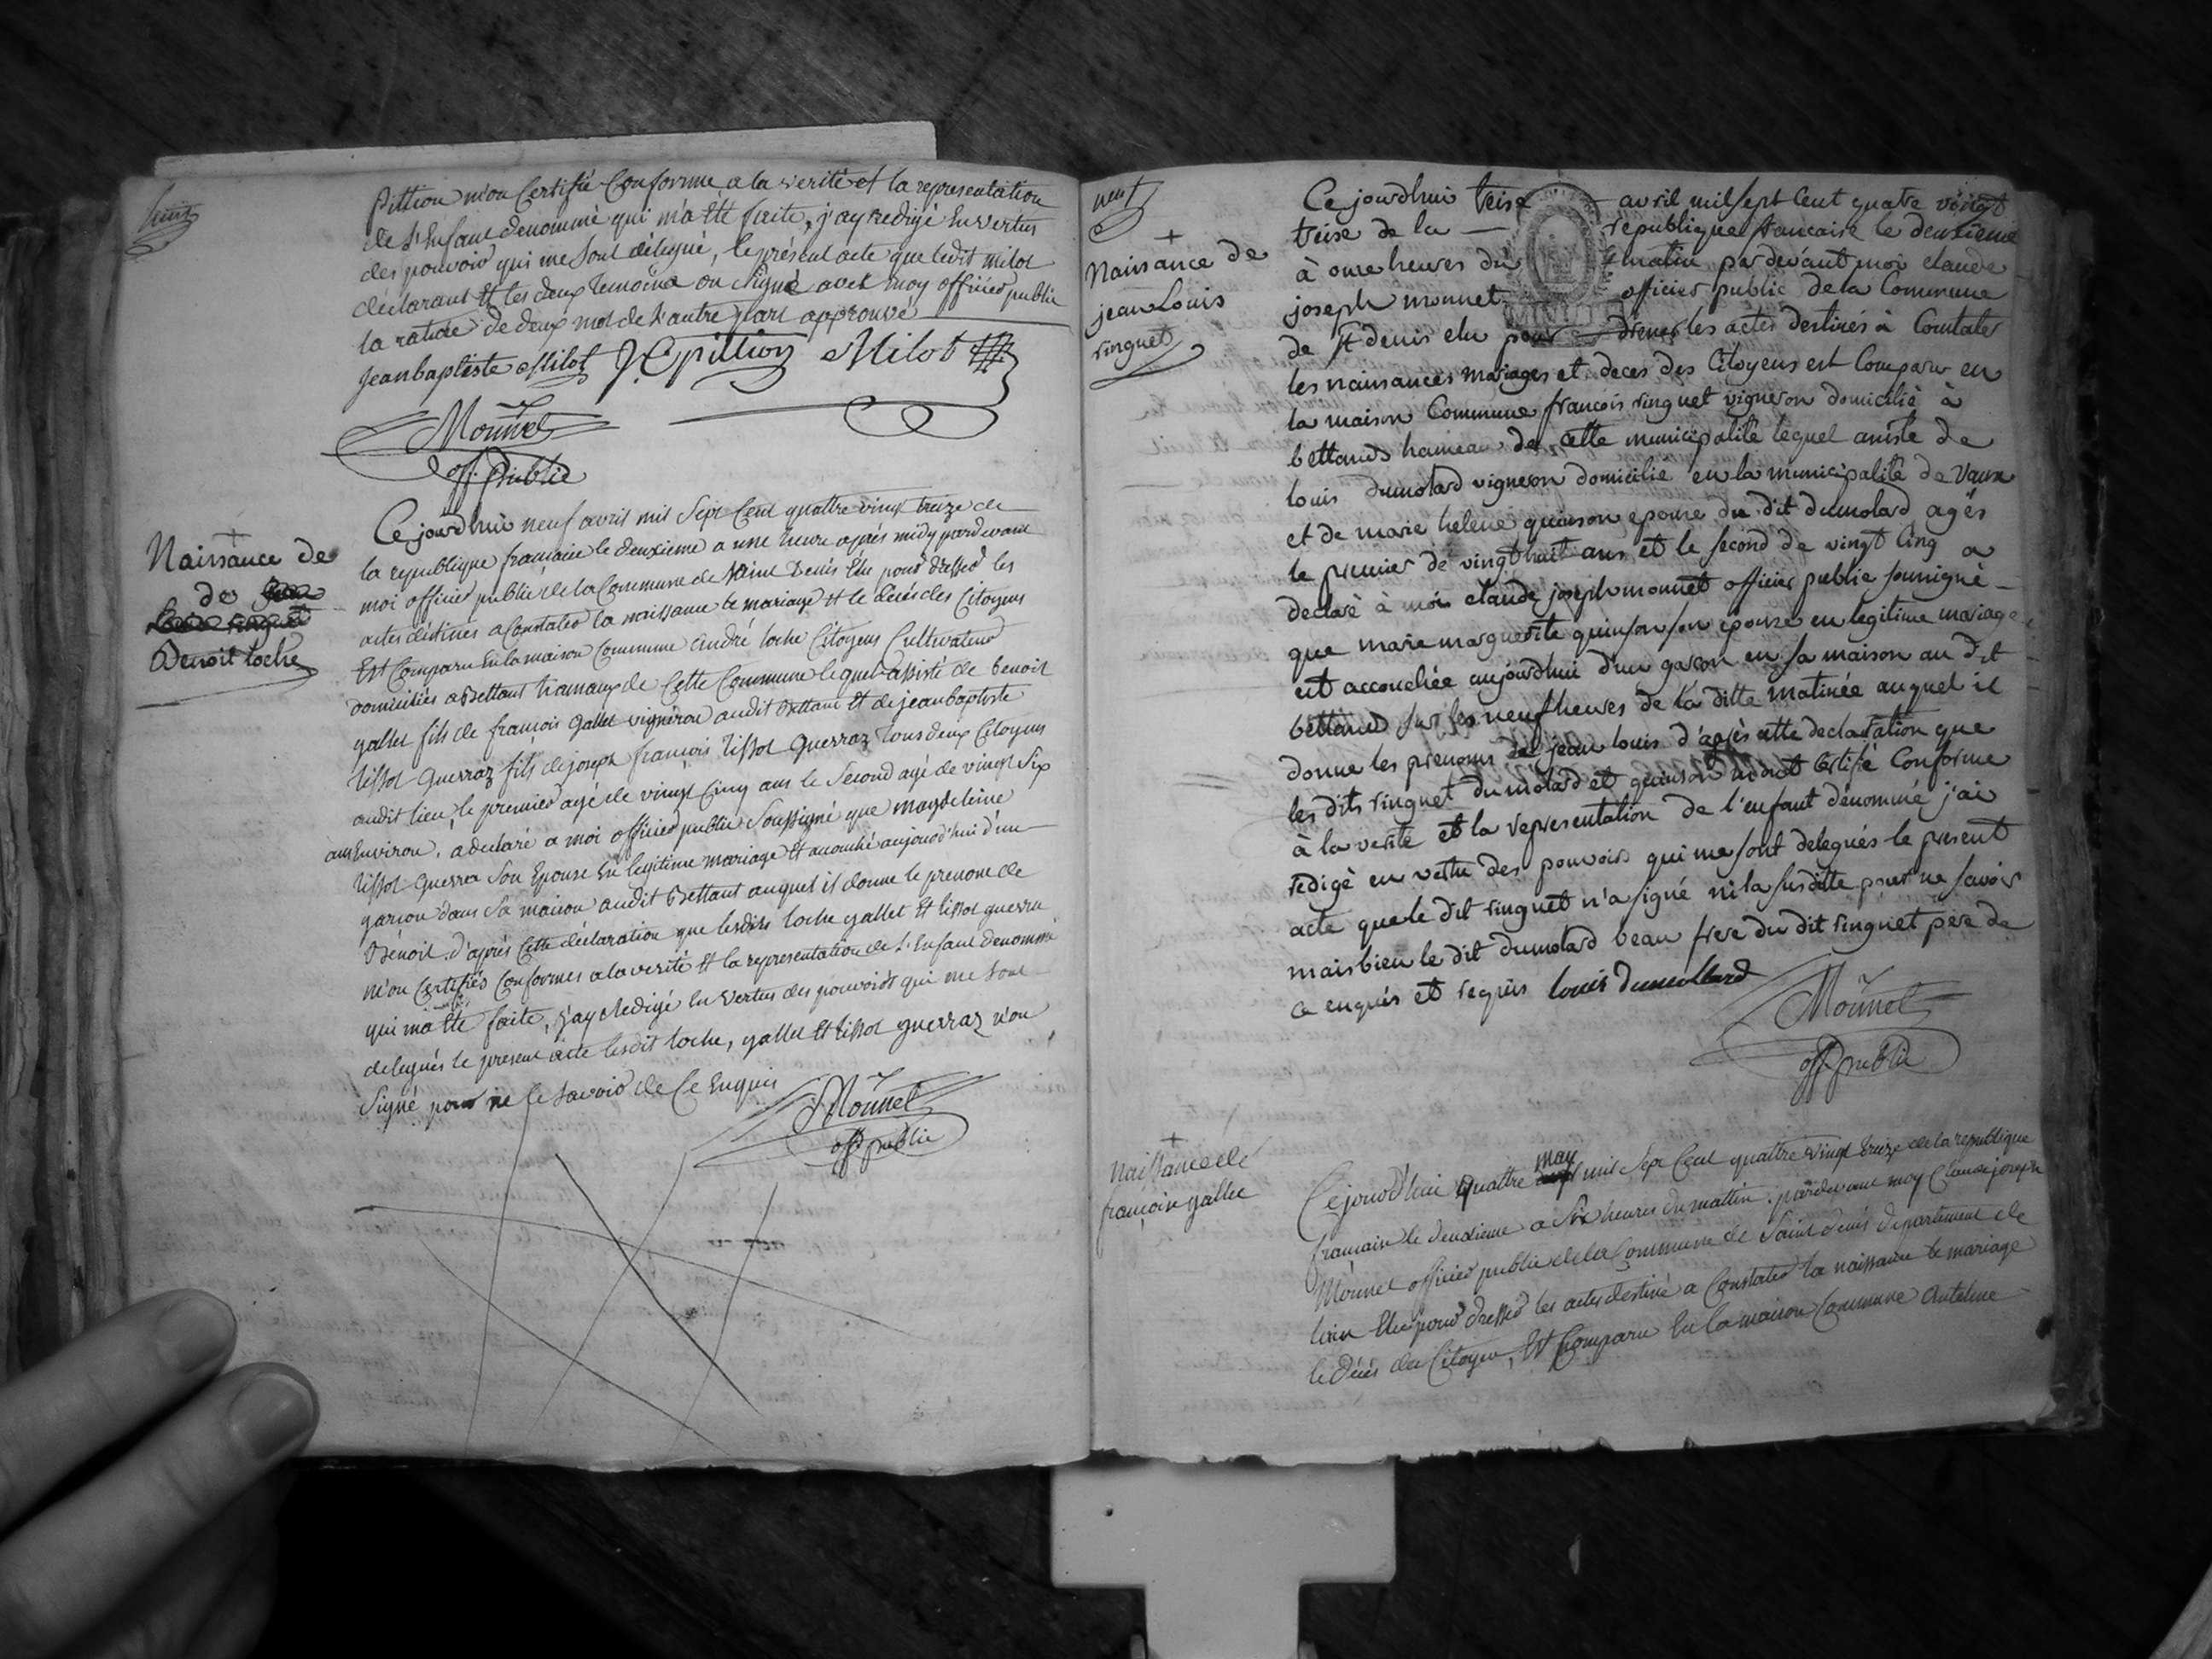 huit
pittion m'on Certifié Conforme a la verité et la representation
de l'Enfant denommé qui m'a Eté faite, j'ay redigé En vertus
des pouvoir qui me sont délegué, le présent acte que ledit milot
déclarant Et les deux temoins on signé avec moy officier public
la rature de deux mot de l'autre part approuvé
jean baptiste Milot J C pittion Milot
Mounet
off. public
Naissance de
de jean
louis ringuet
Benoit loche
Ce jourdhui neuf avril mil Sept Cent quattre vingt treize de
la republique francaise le deuxieme a une heure aprés midy pardevant
moi officier public de la Commune de Saint Denis Elu pour dresser les
actes déstinés a Constater la naissance le mariage Et le décés des Citoyens
Est Comparu En la maison Commune andré loche Citoyens Cultivateur
domiciliés a Bettant hamaux de Cette Commune lequel assisté de benoit
gallet fils de françois gallet vigneron audit Bettant Et de jean baptiste
tissot Guerraz fils de joseph françois tissot Guerraz tous deux Citoyens
audit lieu, le premier agé de vingt Cinq ans le Second agé de vingt Six
ans Environ, a declaré a moi officier public Soussigné que magdeleine
tissot Guerra Son Epouse En legitime mariage Et accouché aujourd'hui d'un
garçon dans Sa maison audit Bettant auquel il donne le prenome de
Bénoit. d'aprés Cette déclaration que lesdits loche gallet Et tissot guerra
m'on Certifiés Conformes a la verité Et la representation de l'Enfant denommé
qui m'a Eté faite, j'ay Redigé En Vertus des pouvoirs qui me Sont
delegués le present acte lesdit loche, gallet Et tissot guerraz n'on
Signé pour ne le Savoir de Ce Enquis
Mounet
off. public
neuf
Naissance de
jean Louis
ringuet
Ce jourdhui treise avril mil sept Cent quatre vingt
treise de la republique francaise le deuxieme
à onze heures du matin pardevant moi claude
joseph monnet officier public de la Commune
de St denis elu pour dresser les actes destinés à Constater
les naissances mariages et deces des Citoyens est Comparu en
la maison Commune francois ringuet vigneron domicilié à
bettand hameau de cette municipalité lequel assisté de
louis dumolard vigneron domicilié en la municipalité de Vaux
et de marie helene quinson epouse du dit dumolard agés
le premier de vingt huit ans et le second de vingt Cinq a
declaré à moi claude joseph monnet officier public soussigné
que marie marguerite quinson son epouse en legitime mariage
est accouchée aujourdhui d'un garcon en sa maison au dit
bettand sur les neuf heures de la ditte matinée auquel il
donne les prenoms de jean louis d'après cette declaration que
les dits ringuet dumolard et quinson m'ont Certifié Conforme
à la verité et la representation de l'enfant dénommé j'ai
redigé en vertu des pouvoirs qui me sont delegués le present
acte que le dit ringuet n'a signé ni la susditte pour ne savoir
mais bien le dit dumolard beau frere du dit ringuet pere de
ce enquis et requis louis dumollard
Mounet
off. public
naissance de
françois gallet
Ce jourd'hui quattre may mil Sept Cent quattre vingt treize de la republique
francaise le deuxieme a Six heures du mattin. pardevant moy Claude joseph
Mounet officier public de la Commune de Saint denis departement de
lain Elu pour dresser les actes destiné a Constater la naissance le mariage
le décés des Citoyen, Est Comparu En la maison Commune Antelme